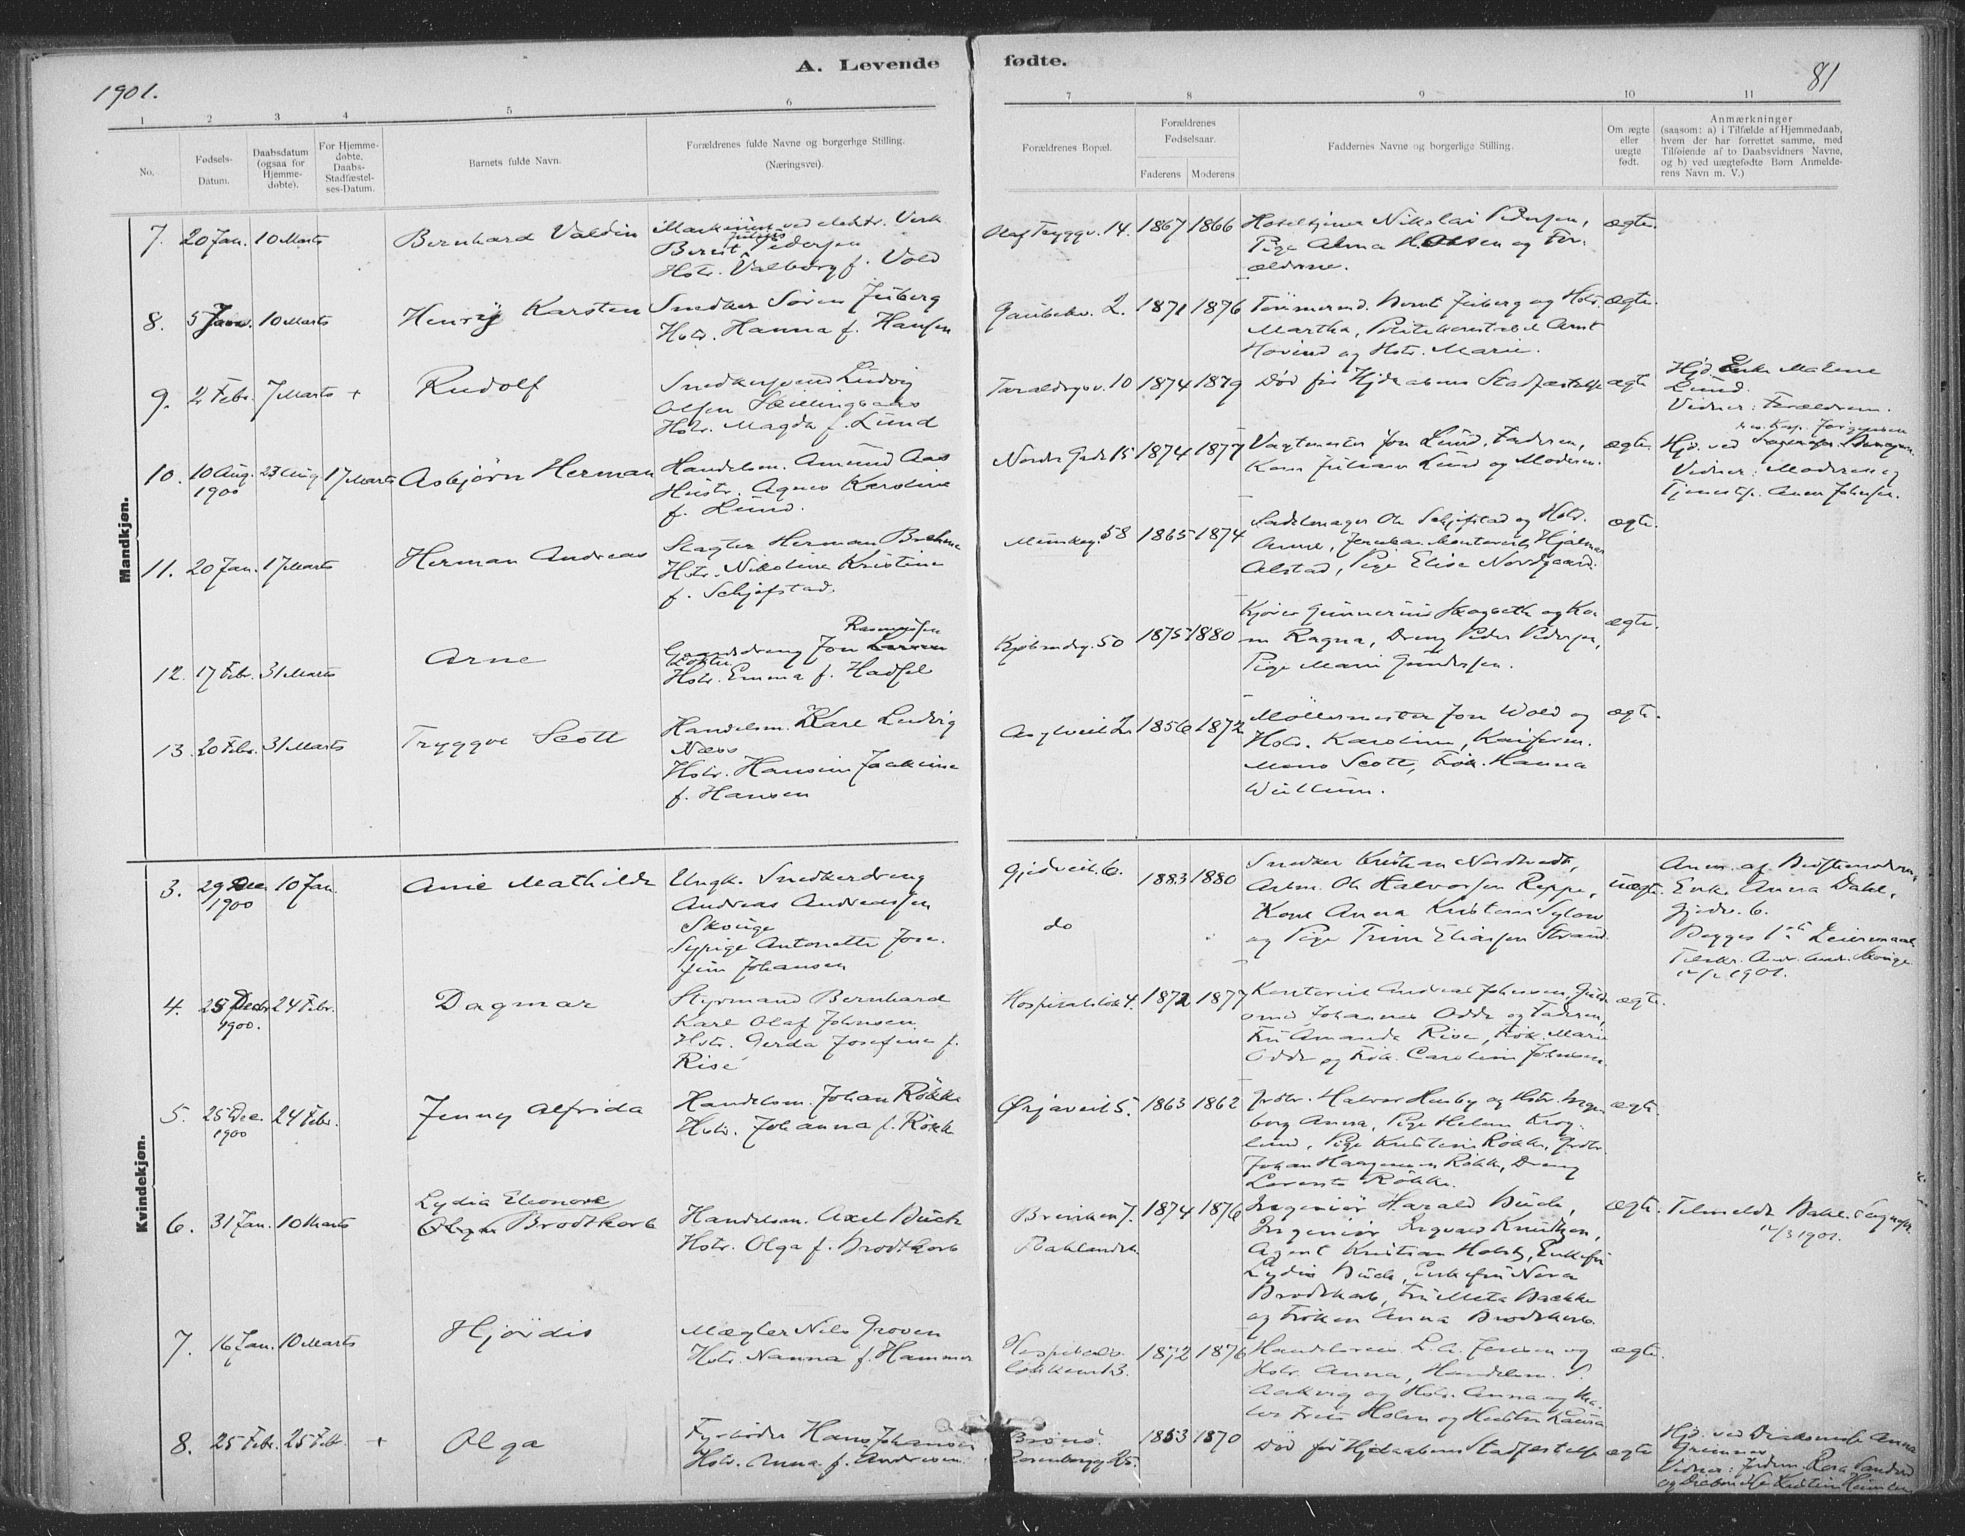 1901.
A. Levende
fødte.
81
1 2 3 4 5 6
7 8 9 10 11
No.
Fødsels-Datum.
Daabsdatum (ogsaa for Hjemmedøbte).
For Hjemmedøbte, Daabs-Stadfæstelses-Datum.
Barnets fulde Navn.
Forældrenes fulde Navne og borgerlige Stilling. (Næringsvei).
Forældrenes Bopæl.
Forældrenes Fødselsaar.
Faderens Moderens
Faddernes Navne og borgerlige Stilling.
Om ægte eller uægte født.
Anmærkninger
(saasom: a) i Tilfælde af Hjemmedaab,
hvem der har forrettet samme, med
Tilføiende af to Daabsvidners Navne,
og b) ved uægtefødte Børn Anmelde-
rens Navn m. V.)
Mandkjøn.
7. 20 Jan. 10 Marts Bernhard Valdin
ved elektr. Verk
Bernt Pedersen
Hstr. Valborg f. Vold
Olaf Tryggv. 14. 1867 1866
Nikolai Pedersen,
Pige Alma Olsen og For-
ældrene.
ægte.
8. 5 Janr. 10 Marts Henrij Karsten
Snedker Søren Juberg
Hstr. Hanna f. Hansen
2. 1871 1876
Tømmermd. Bernt Juberg og Hstr.
Martha, Politikonstabel Arnt
Hovind og Hstr. Marie.
ægte.
9. 2 Febr. 7 Marts + Rudolf
Snedkersvend Ludvig
Olsen
Hstr. Magda f. Lund
10 1874 1879
Død før Hjdaabens Stadfæstelse
ægte
Hjd. Enke Malene
Lund.
Vidner: Forældrene.
10. 10 Aug. 1900 23 Aug 17 Marts Asbjørn Herman
Handelsm. Amund Aas
Hustr. Agnes Karoline
f. Lund.
Nordre Gade 15 1874 1877
Vagtmester Jon Lund, Faderen,
Kone Juliane Lund og Moderen.
ægte.
res. Kap. Jørgensen
Hjd. ved
Vidner: Moderen og
Tjenestep. Anna Johnsen.
11. 20 Jan. 17 Marts Herman Andreas
Slagter Herman
Hstr. Nikoline Kristine
f. Schjefstad.
Munkeg. 58 1865 1874
Sadelmager Ole Schjefstad og Hstr.
Hjalmar
Alstad, Pige Elise Nordgaard.
ægte.
12. 17 Febr. 31 Marts Arne
Rasmussen
Gaardsdreng Jon
Hstr. Emma f. Hadsel
Kjøbmdg. 50 1875 1880
Kjører Gunnerius Skogseth og Ko-
ne Ragna, Dreng Peder Pedersen,
Pige Marie Gundersen.
ægte.
13. 20 Febr. 31 Marts Tryggve Scott
Handelsm. Karl Ludvig
Næss
Hstr. Hansine Jackine
f. Hansen
Asylveit 2. 1856 1872
Møllermester Jon Wold og
Hstr. Karoline,
Mons Scott, Frk. Hanna
ægte.
Kvindekjøn.
3. 29 Dec. 1900 10 Jan. Anie Mathilde
Ungk. Snedkerdreng
Andreas Andreassen
Skouge
Sypige Antonette Jose-
fine Johansen
Gjedveit. 6. 1883 1880
do
Snedker Kristian
Arbm. Ole Halvorsen Reppe,
Kone Anna Kristine Sylow
og Pige Trine Eliassen Strand
uægte.
Anm. af Bedstemoderen,
Enke Anna Dahl,
Gjedv. 6.
Begges 1ste Leiermaal
1901.
4. 25 Decbr 1900. 24 Febr. Dagmar
Styrmand Bernhard
Karl Olaf Johnsen
Hstr. Gerda Josefine f.
Rise
4. 1872 1877
Kontorist Andreas Johnsen, Guld-
smed Johannes Odde og Faderen,
Fru Amanda Rise, Frk. Marie
Odde og Frk. Caroline Johnsen.
ægte.
5. 25 Dec. 1900 24 Febr. Jenny Alfrida
Handelsm. Johan Røkke
Hstr. Johanna f. Røkke
Ørjaveit 5. 1863 1862
Grdbr. Halvor Husby og Hstr. Inge-
borg Anna, Pige Helene Krog-
lund, Pige Kristine Røkke, Grdbr.
Johan Haagensen Røkke, Dreng
Lorents Røkke.
ægte.
6. 31 Jan. 10 Marts Lydia Eleonore
Brodtkorb
Handelsm. Axel Buck
Hstr. Olga f. Brodtkorb
7. 1874 1876
Baklandet
Ingeniør Harald Buck,
Ingeniør Sigvald Knudtzon,
Agent Kristian Holst, Enkefru
Lydia Buck, Enkefru Nora
Brodtkorb, Fru Meta Bakke
og Frøken Anna Brodtkorb.
ægte.
Tilmeldt Bakl. Sognepr.
1901.
7. 16 Jan. 10 Marts Hjördis
Mægler Nils Groven
Hstr. Nanna f. Hammer
Hospitals-
løkken 13. 1872 1876
L. A. Jensen og
Hstr. Anna, Handelsm. P.
Aakvig og Hstr. Anna og Ma-
ler Frits Holm og Hustru Laura
ægte.
8. 25 Febr. 25 Feb. + Olga
Fyrbøder Hans Johansen
Hstr. Anna f. Andresen
Brönö.
Rosenborgg 25. 1853 1870
Død før Hjdaabens Stadfæstelse
ægte
Hjd. ved Diakonisse Anna
Vidner: Jordm.
og Diakonisse Kristine